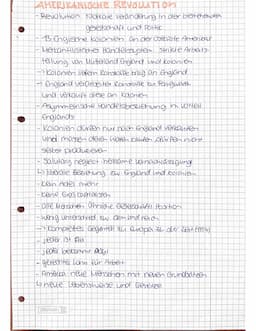 AMERIKANISCHE REVOLUTION
- Revolution: Radikale Veränderung in der bestehenden
gesellschaft und Politik
- 13 Englische Kolonien an der Ostküste Amerikas
- Merkantilistisches Handelssystem: strikte Arbeits-
teilung von Mutterland England und Kolonien
-> Kolonien liefern Rohstoffe billig an England
-> England verarbeitet Rohstoffe zu Fertigware
und verkauft diese an Kolonien
- Asymmetrische Handelsbeziehung: im Vorteil
Englands
- Kolonien dürfen nur nach England verkaufen
und müssen diese waren kaufen, dürfen nicht
selber produzieren
- Salutary neglect: heilsame Vernachlässigung
↳ liberale Beziehung zw. England und Kolonien
- kein Adel mehr
- keine Großkapitalisten
- alle Menschen ähnliche Gesellschaftl. Position
- wenig unterschied zw. arm und reich
-> komplettes Gegenteil zu Europa zu der Zeit
- jeder ist frei
- jeder bekommt
- gerechter Lohn für Arbeit
- Amerika: neue Menschen mit neuen Grundsätzen
↳ neue Lebensweise und Gesetze